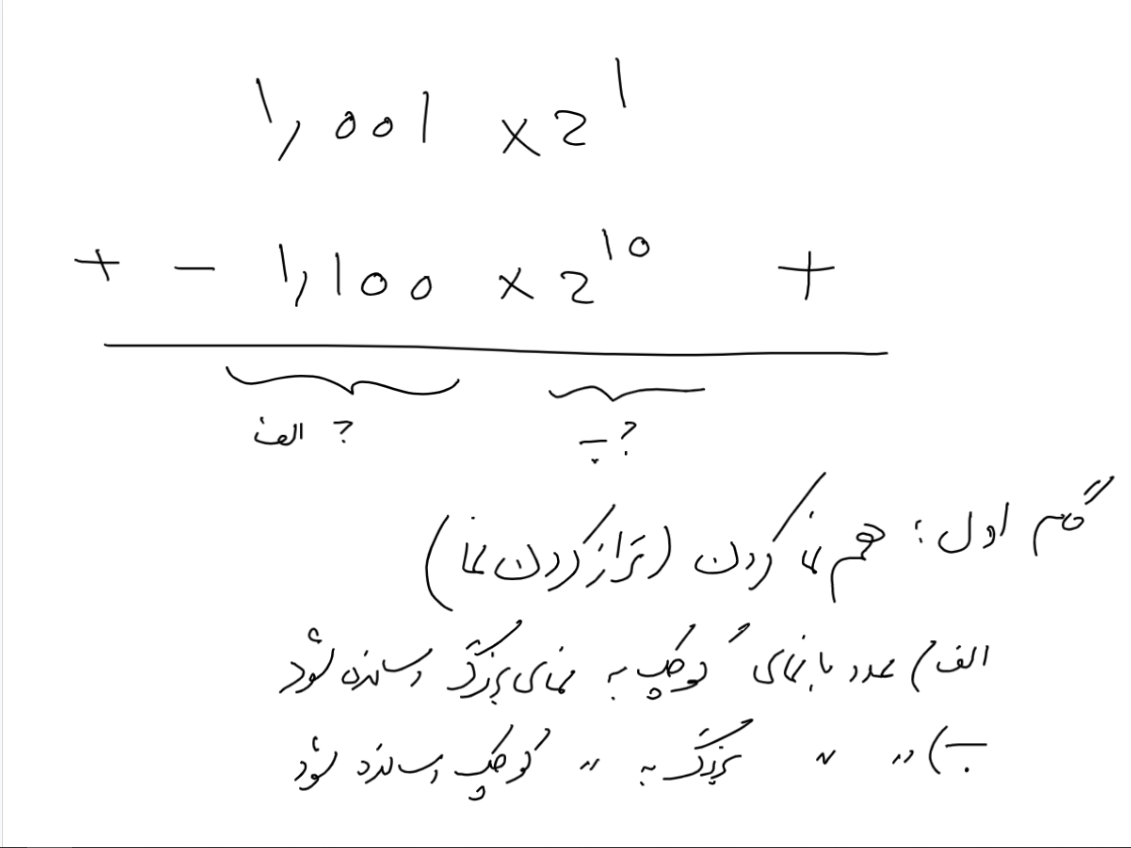 1,001 × 2^1
+ - 1,100 × 2^10 +
الف ? ب ?
گام اول : هم نما کردن (تراز کردن نما)
الف) عدد با نمای کوچک به نمای بزرگ رسانده شود
ب) 〃 〃 بزرگ به 〃 کوچک رسانده شود